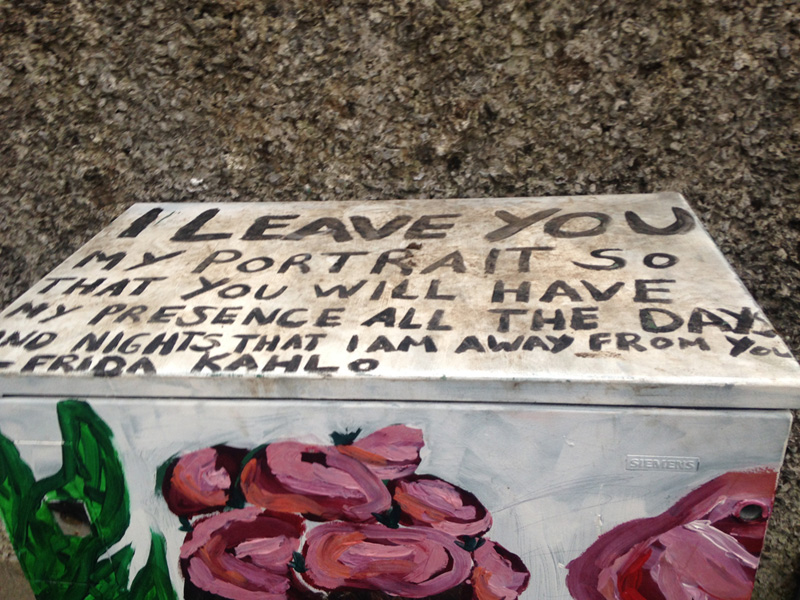 I LEAVE YOU
MY PORTRAIT SO
THAT YOU WILL HAVE
MY PRESENCE ALL THE DAYS
AND NIGHTS THAT I AM AWAY FROM YOU
- FRIDA KAHLO
SIEMENS